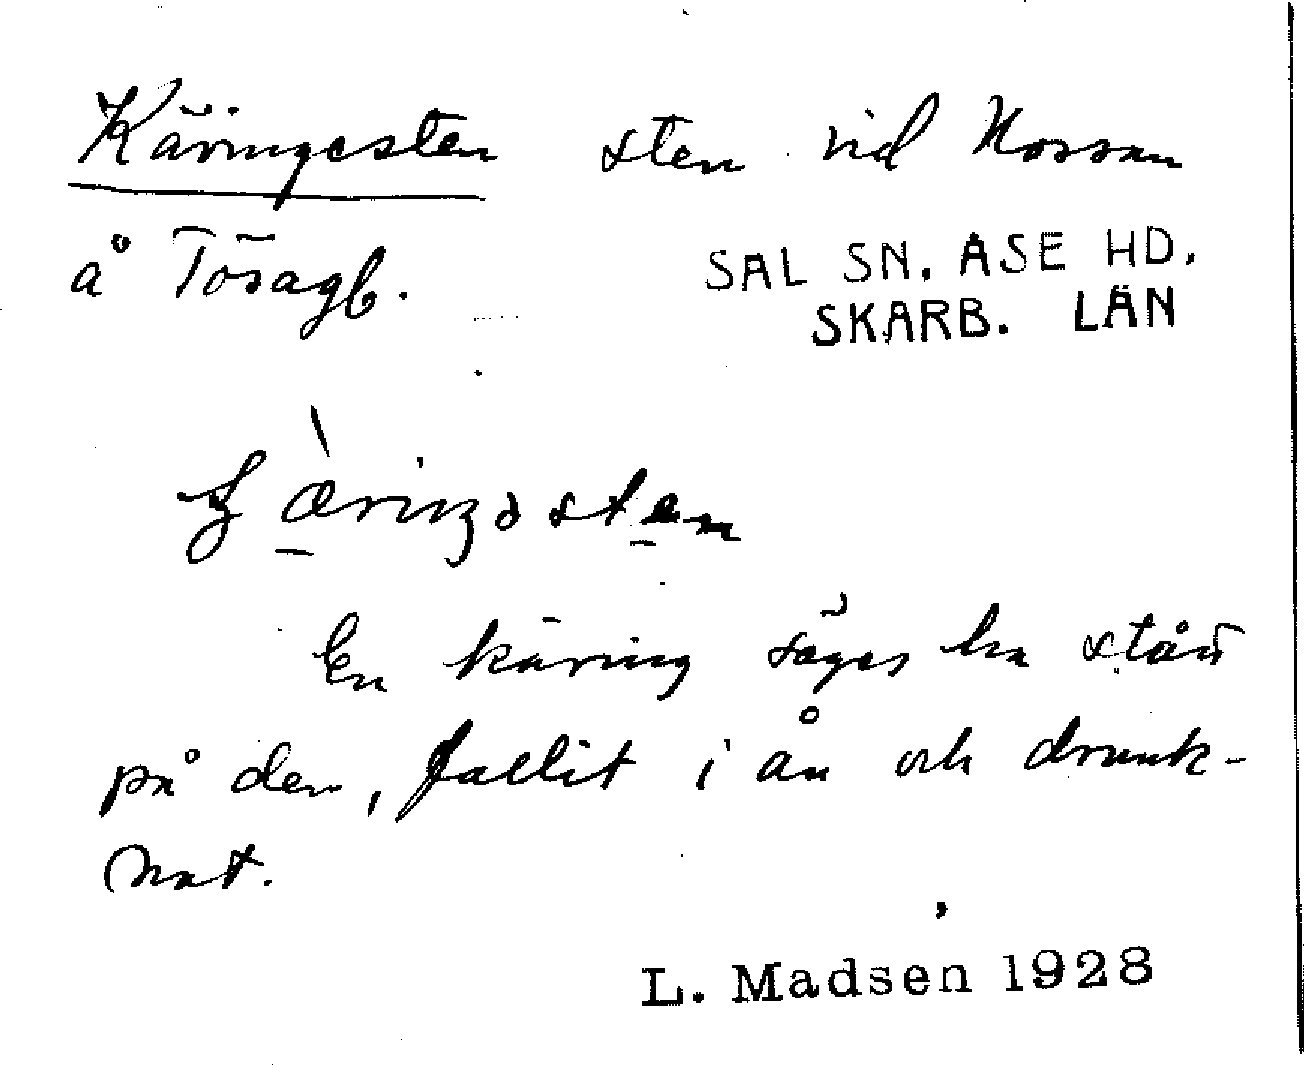 Käringesten sten vid Nossan
å Tösagb.
SAL SN. ÅSE HD.
SKARB. LÄN
En käring säges ha stått
på den, fallit i ån och drunk-
nat.
L. Madsen 1928